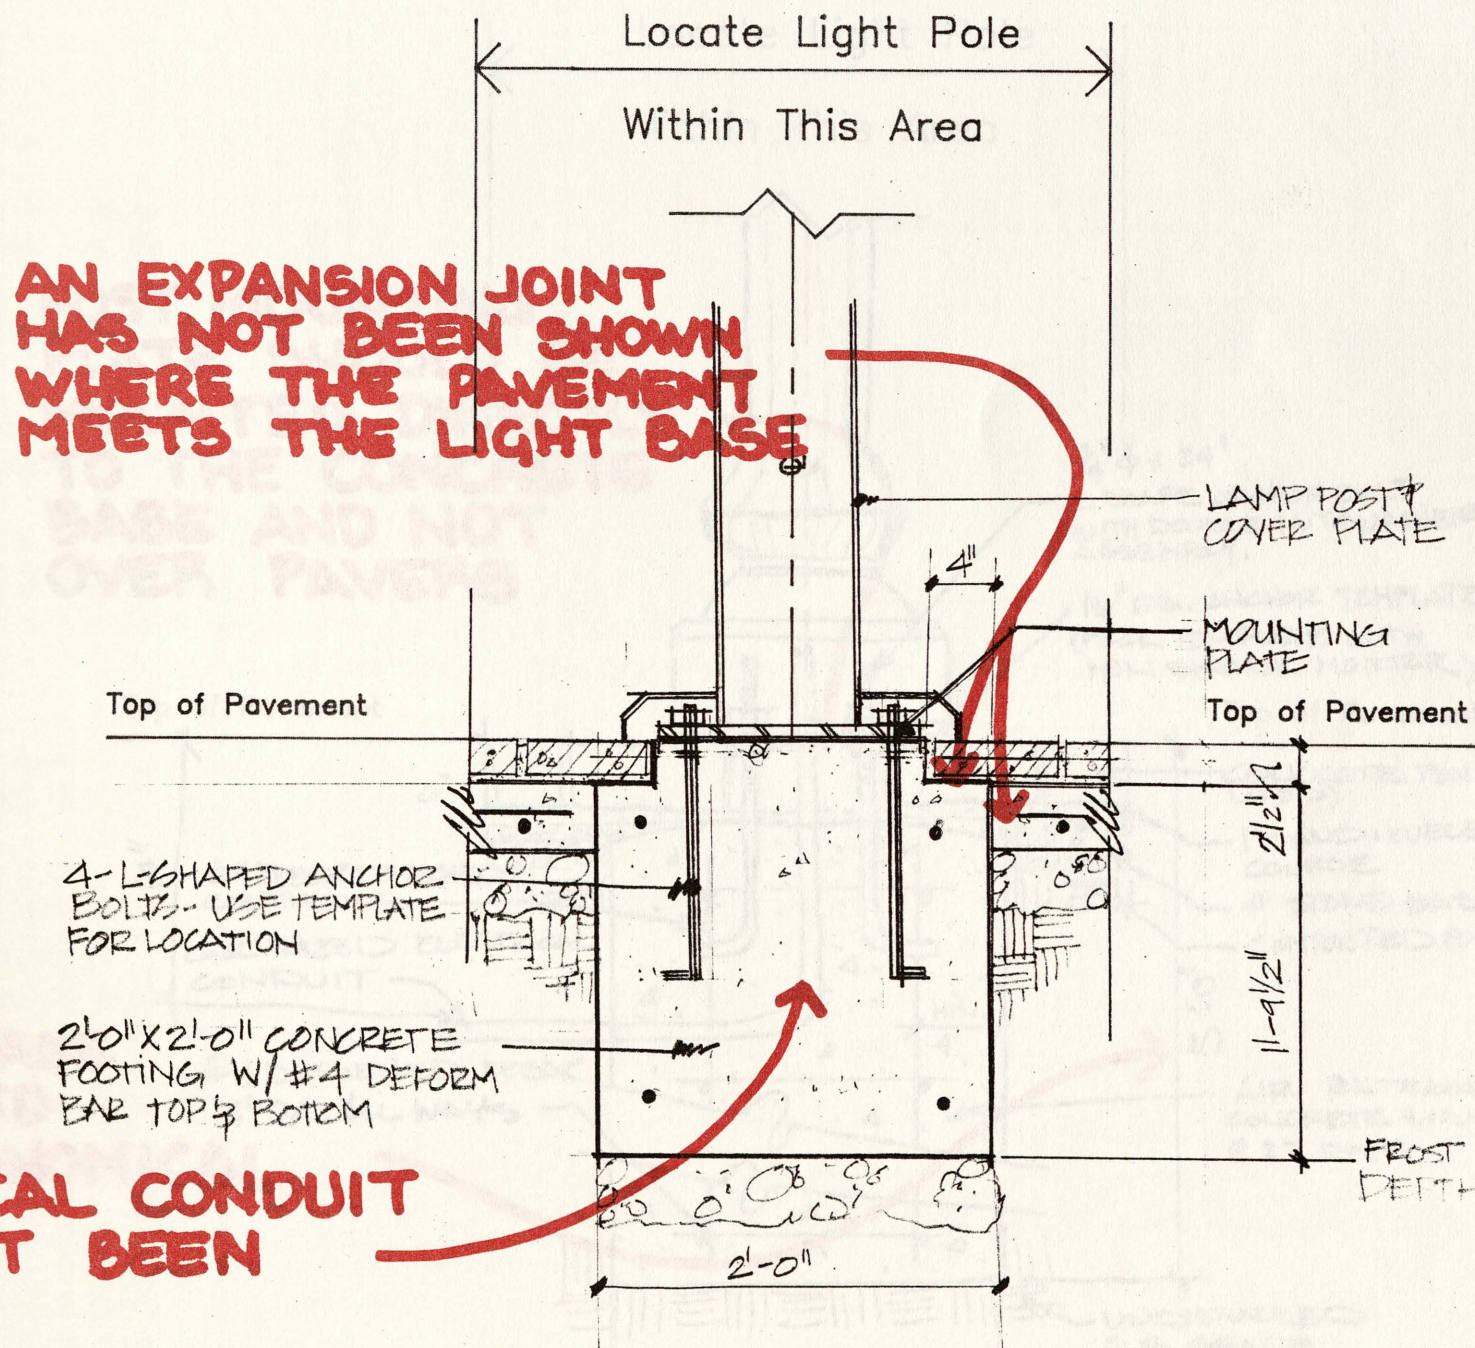 Locate Light Pole
Within This Area
AN EXPANSION JOINT
HAS NOT BEEN SHOWN
WHERE THE PAVEMENT
MEETS THE LIGHT BASE
LAMP POST &
COVER PLATE
4"
MOUNTING
PLATE
Top of Pavement
Top of Pavement
2 1/2"
4-L-SHAPED ANCHOR
BOLTS - USE TEMPLATE
FOR LOCATION
1'-9 1/2"
2'-0" X 2'-0" CONCRETE
FOOTING W/ #4 DEFORM
BAR TOP & BOTTOM
FROST
DEPTH
CAL CONDUIT
T BEEN
2'-0"